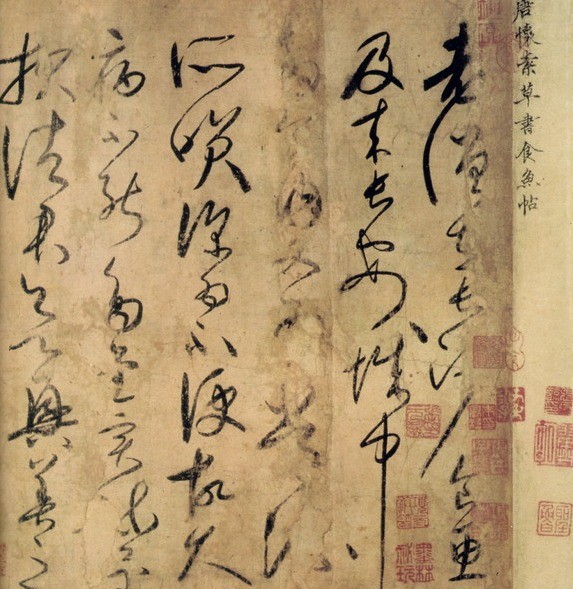 唐懷素草書食魚帖
老僧在長沙食魚
及来長安城中
多食肉又為常流
所笑深為不便故久
病不能多書實疏
報諸君欲興善之